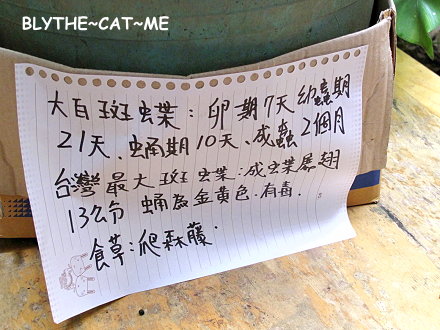 BLYTHE~CAT~ME
大白斑虫蝶：卵期7天 幼蟲期
21天、蛹期10天、成蟲2個月
台灣最大斑虫蝶：成虫蝶展翅
13公分 蛹為金黃色.有毒.
食草：爬森藤.